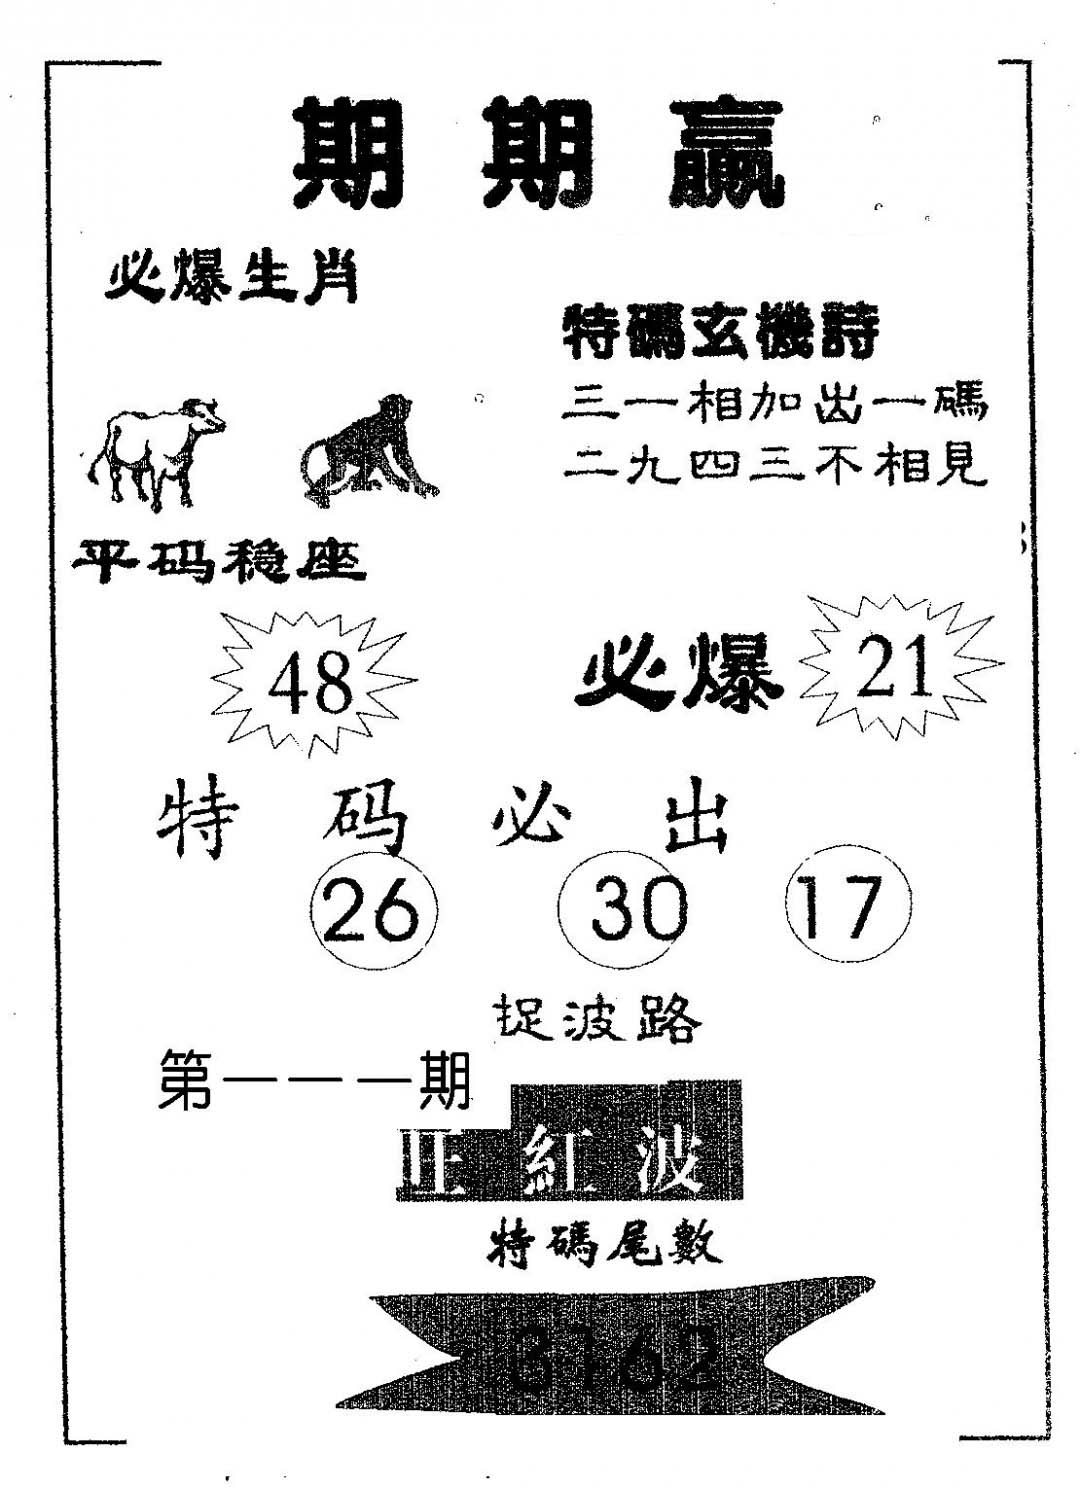 期期贏
必爆生肖
特碼玄機詩
三一相加出一碼
二九四三不相見
平码稳座
48
必爆 21
特码必出
26 30 17
捉波路
第一一一期
旺紅波
特碼尾數
3162